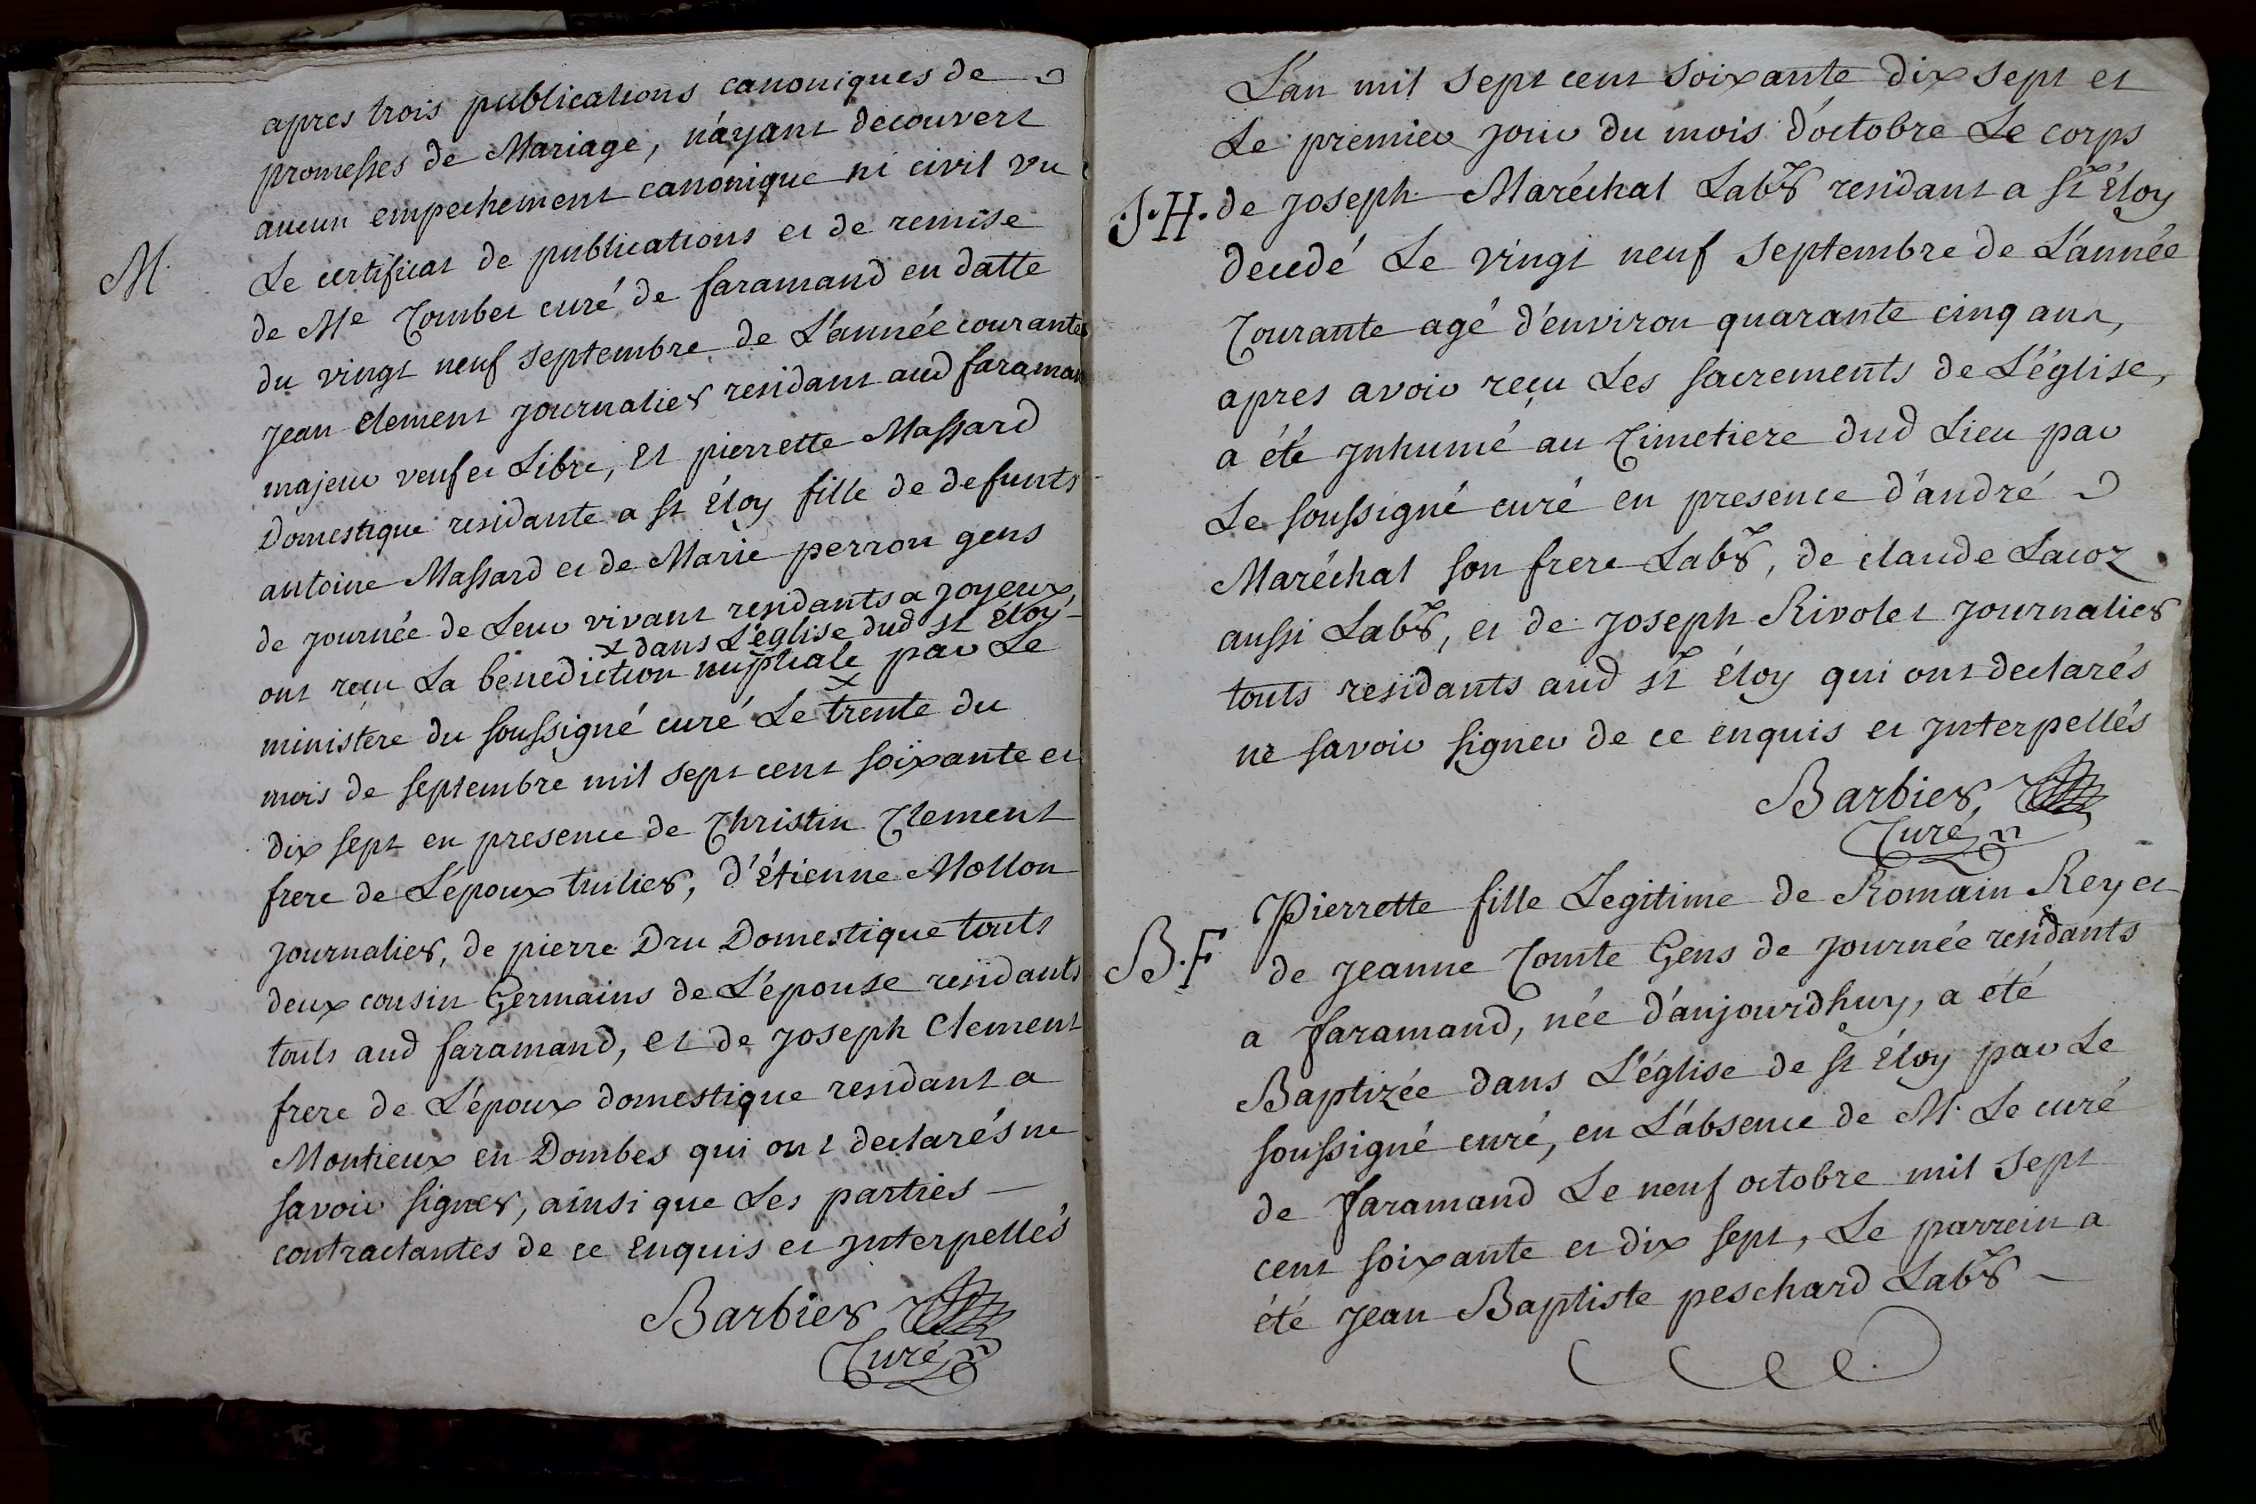 apres trois publications canoniques de
promesses de Mariage, n'ayant decouvert
aucun empechement canonique ni civil vu
M. Le certificat de publications et de remise
de Me Combet curé de faramand en datte
du vingt neuf septembre de L'année courante
jean Clement journalier residant aud faraman
majeur veuf et Libre, et pierrette Massard
Domestique residante a st Éloy fille de defunts
antoine Massard et de Marie perron gens
de journée de Leur vivant residants a joyeux,
x dans L'église dud st Éloy
ont reçu La benediction nuptiale par Le
ministère du soussigné curé Le trente du
mois de septembre mil sept cent soixante et
dix sept en presence de Christin Clement
frere de L'époux tuilier, d'Étienne Mollon
journalier, de pierre Dru Domestique touts
deux cousin Germains de L'épouse residants
touts aud faramand, et de joseph Clement
frere de L'époux domestique residant a
Montieux en Dombes qui ont declarés ne
savoir signer, ainsi que Les parties
contractantes de ce enquis et interpellés
Barbier
Curé
L'an mil sept cent soixante dix sept et
Le premier jour du mois d'octobre Le corps
S.H. de joseph Maréchal Labr residant a st Éloy
decedé Le vingt neuf septembre de L'année
Courante agé d'environ quarante cinq ans,
apres avoir reçu Les sacrements de L'église,
a été inhumé au Cimetiere dud Lieu par
Le soussigné curé en presence d'andré
Maréchal son frere Labr, de claude Lacoz
aussi Labr, et de joseph Rivolet journalier
touts residants aud st Éloy qui ont declarés
ne savoir signer de ce enquis et interpellés
Barbier,
Curé
Pierrette fille Legitime de Romain Rey et
B.F de jeanne Comte Gens de journée residants
a faramand, née d'aujourdhuy, a été
Baptizée dans L'église de st Éloy par Le
soussigné curé, en L'absence de M. Le curé
de faramand Le neuf octobre mil sept
cent soixante et dix sept, Le parrein a
été jean Baptiste peschard Labr